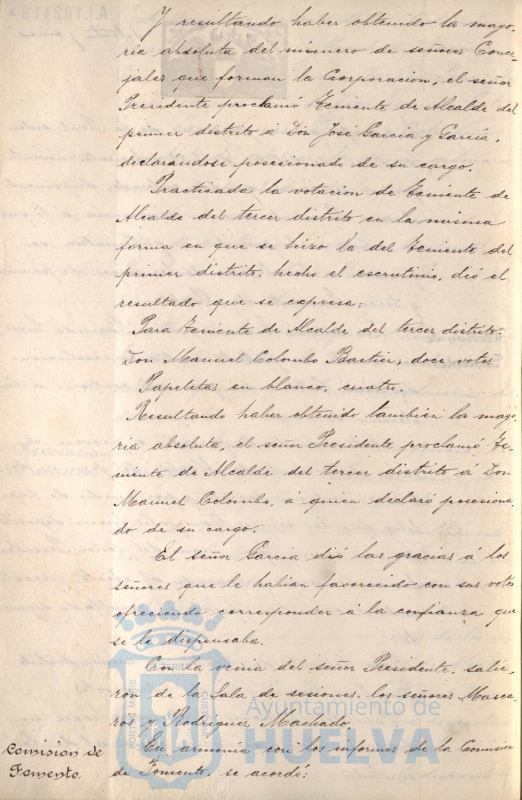 Y resultando haber obtenido la mayo-
ria absoluta del número de señores Conce-
jales que forman la Corporacion, el señor
Presidente proclamó Teniente de Alcalde del
primer distrito á Don José Garcia y Garcia,
declarándose posesionado de su cargo.
Practicada la votacion de Teniente de
Alcalde del tercer distrito en la misma
forma en que se hizo la del Teniente del
primer distrito, hecho el escrutinio, dió el
resultado que se expresa:
Para Teniente de Alcalde del tercer distrito.
Don Manuel Colombo Bartier, doce votos
Papeletas en blanco, cuatro.
Resultando haber obtenido tambien la mayo-
ria absoluta, el señor Presidente proclamó Te-
niente de Alcalde del tercer distrito á Don
Manuel Colombo, á quien declaró posesiona-
do de su cargo.
El señor Garcia dió las gracias á los
señores que le habian favorecido con sus votos
ofreciendo corresponder á la confianza que
se le dispensaba.
Con la venia del señor Presidente, salie-
ron de la Sala de sesiones los señores Masca-
ros y Rodriguez Machado.
En armonia con los informes de la Comision
de Fomento, se acordó:
Comision de
Fomento.
Ayuntamiento de
HUELVA
PORTUS MARIS
ET TERRAE
CUSTODIA